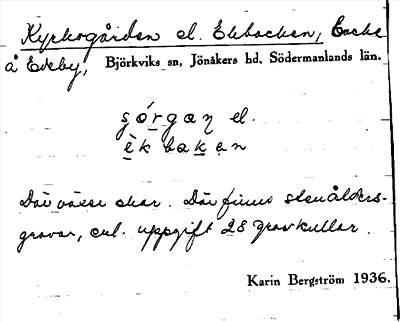 Kyrkogården el. Ekbacken, backe
å Ekeby, Björkviks sn, Jönåkers hd, Södermanlands län.
el.
Där växer ekar. Där finns stenålders-
gravar, enl. uppgift 28 gravkullar.
Karin Bergström 1936.